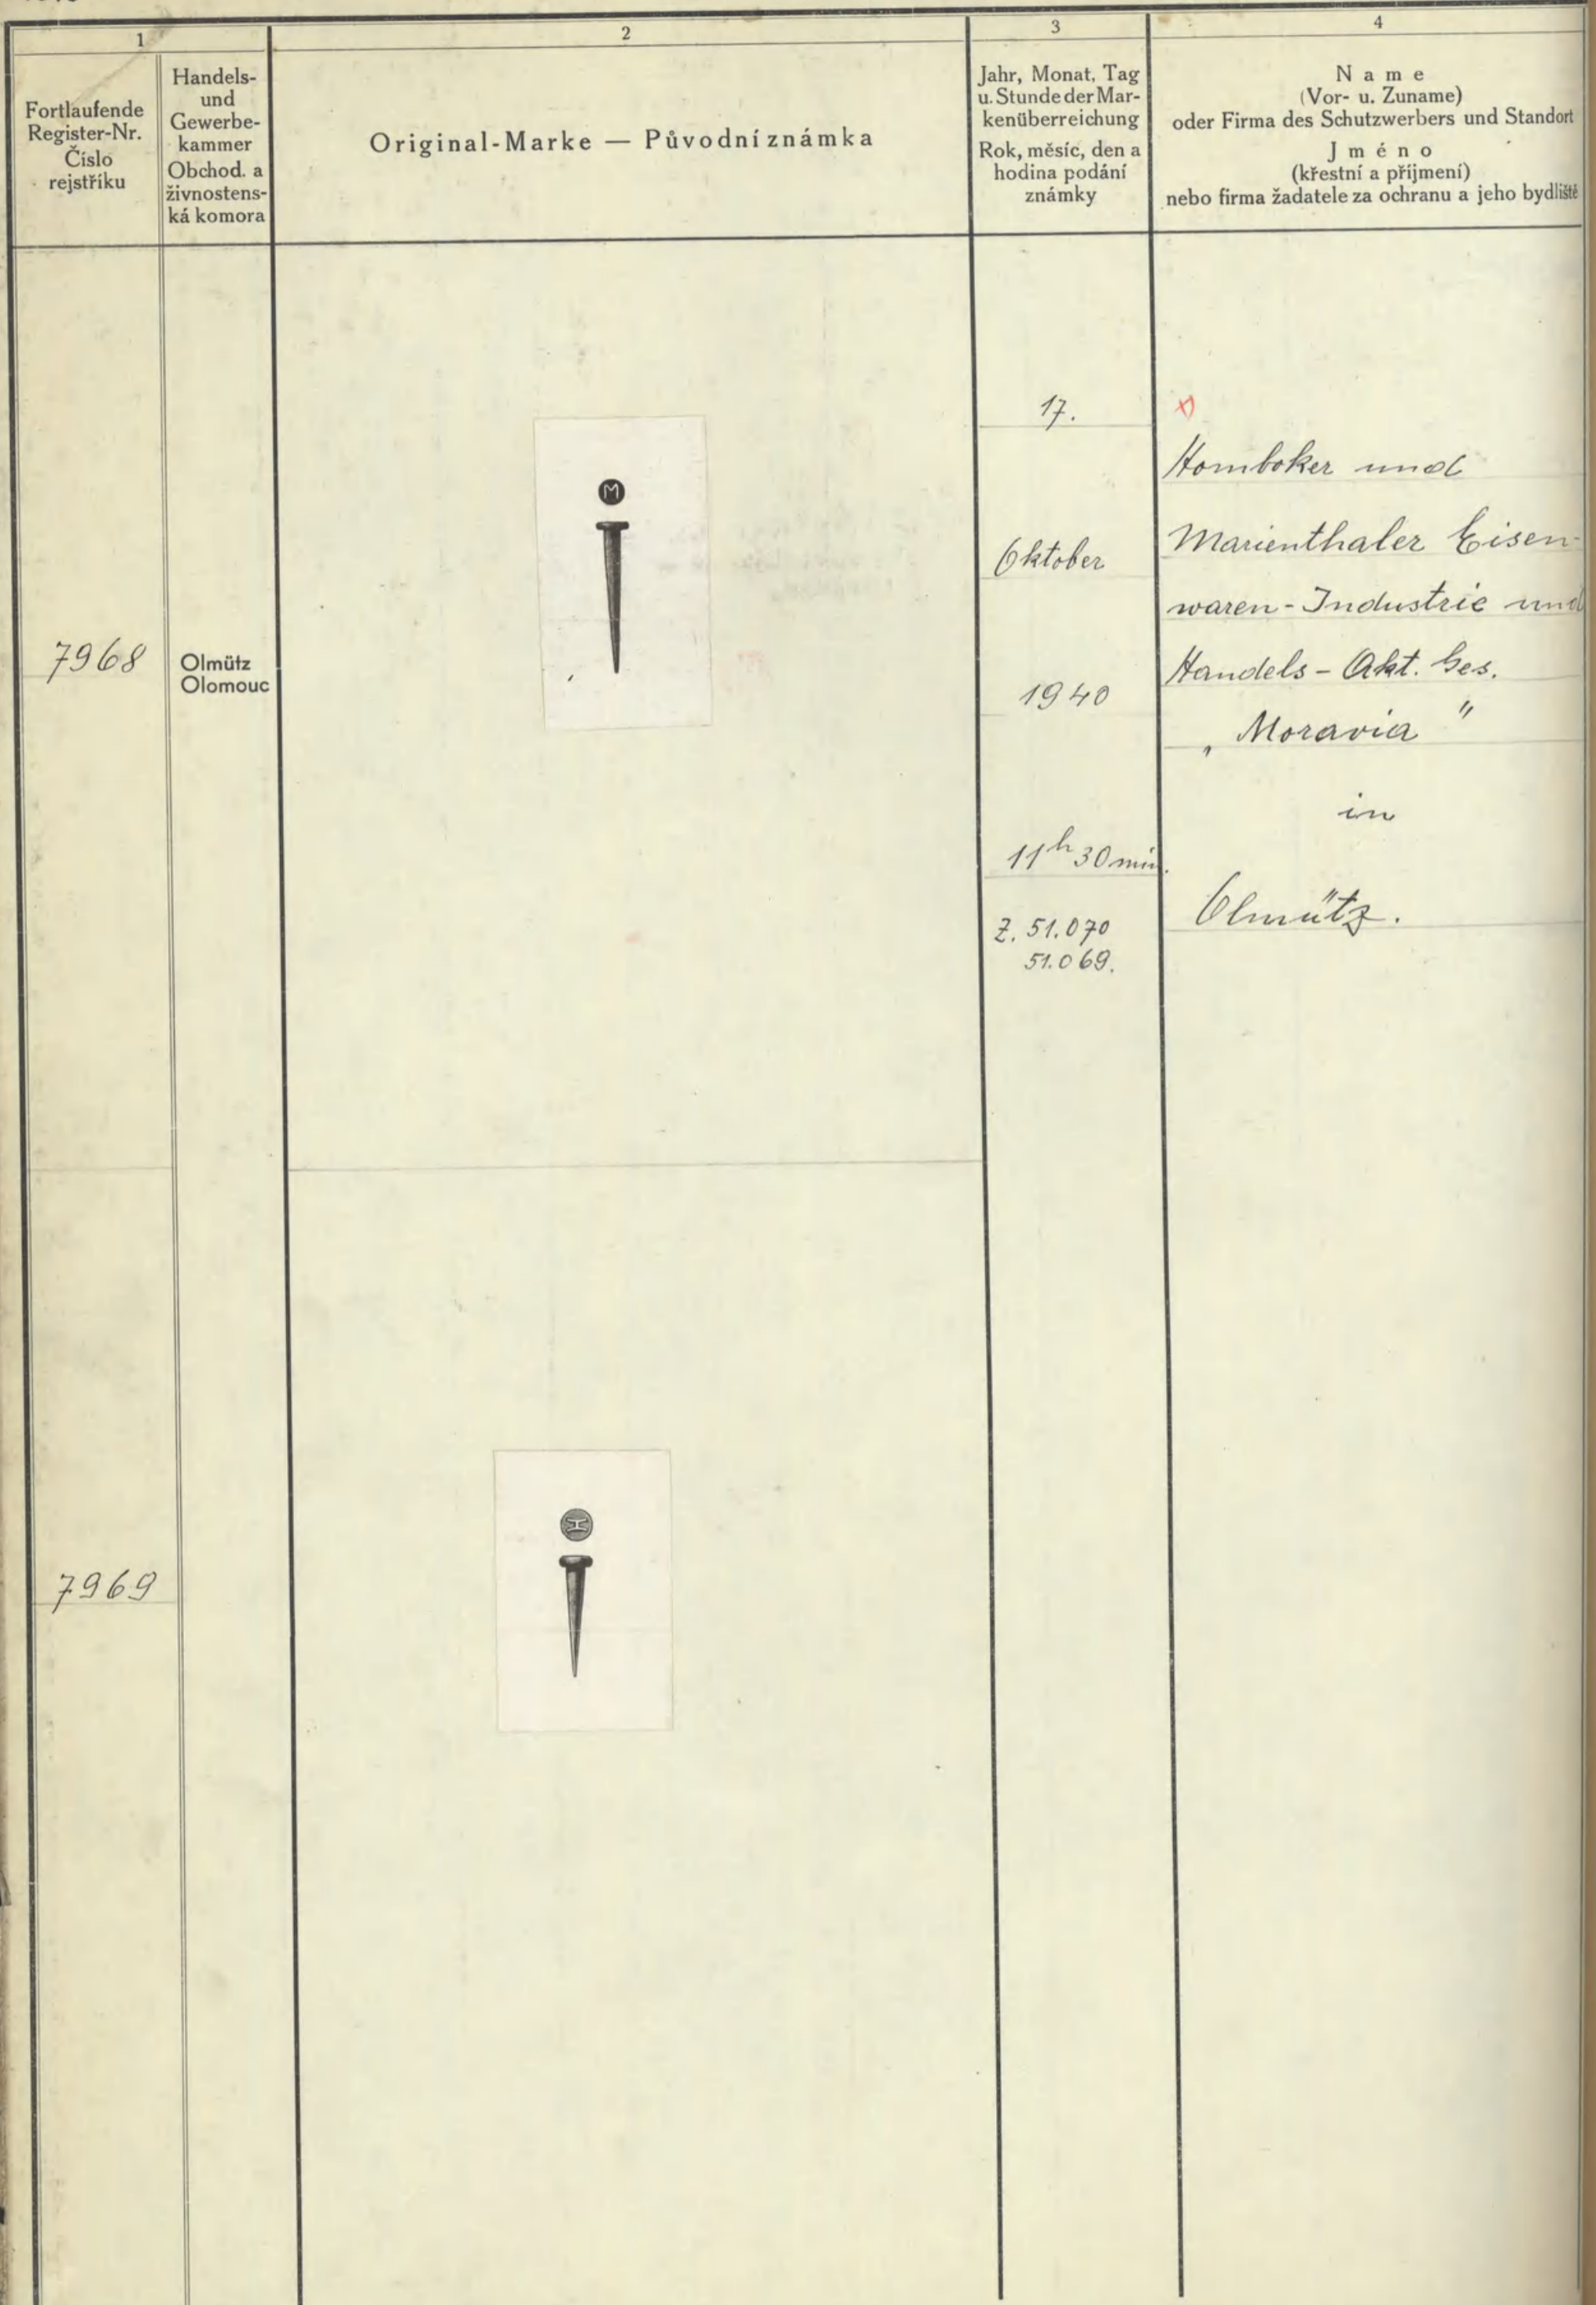 1
Fortlaufende
Register-Nr.
Číslo
rejstříku
Handels-
und
Gewerbe-
kammer
Obchod. a
živnostens-
ká komora
2
Original-Marke — Původní známka
3
Jahr, Monat, Tag
u. Stunde der Mar-
kenüberreichung
Rok, měsíc, den a
hodina podání
známky
4
Name
(Vor- u. Zuname)
oder Firma des Schutzwerbers und Standort
Jméno
(křestní a příjmení)
nebo firma žadatele za ochranu a jeho bydliště
7968
Olmütz
Olomouc
M
17.
Oktober
1940
11h 30 min.
Z. 51.070
51.069.
x)
Homboker und
Marienthaler Eisen-
waren-Industrie und
Handels-Akt. Ges.
„Moravia"
in
Olmütz.
7969
H